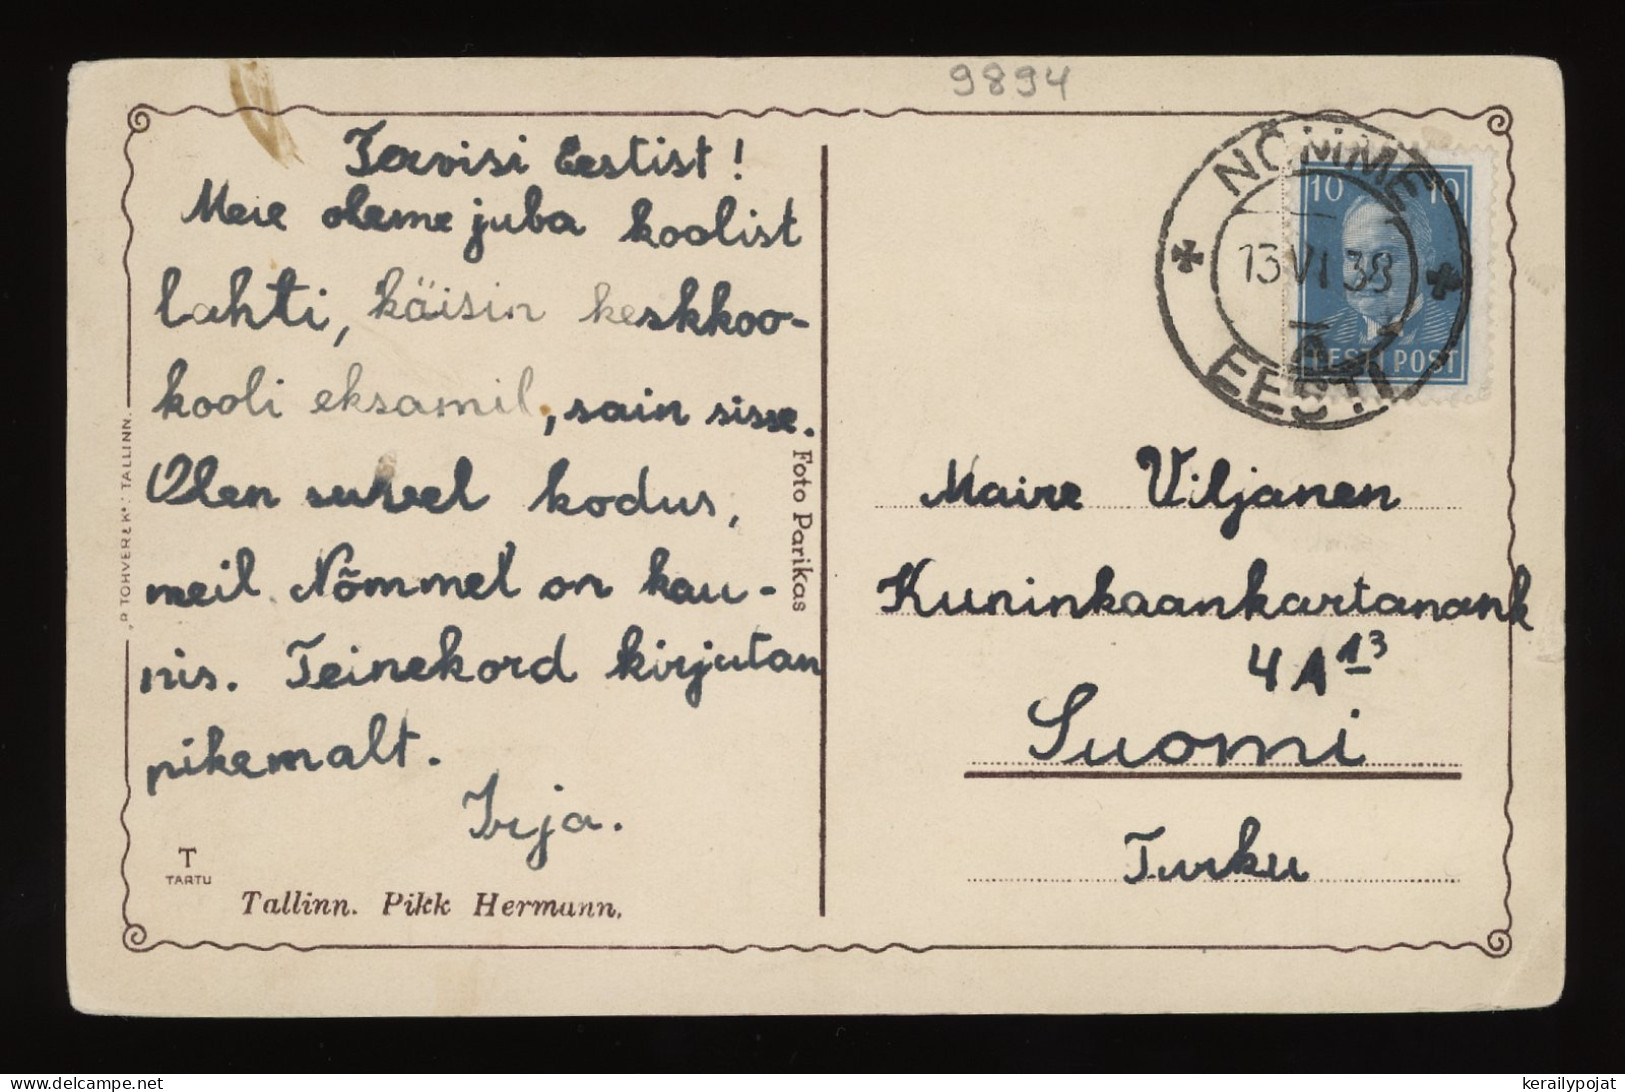 9894
Tervisi Eestist!
Meie oleme juba koolist
lahti, käisin keskkoo-
kooli eksamil, sain sisse.
Olen suvel kodus,
meil Nõmmel on kau-
nis. Teinekord kirjutan
pikemalt.
Irja.
T
TARTU
Tallinn. Pikk Hermann.
P. TOHVER & Ko TALLINN.
Foto Parikas
NÕMME
13 VI 38
EESTI
10 10
EESTI POST
Maire Viljanen
Kuninkaankartanonk
4 A 13
Suomi
Turku
delcampe.net
kerailypojat